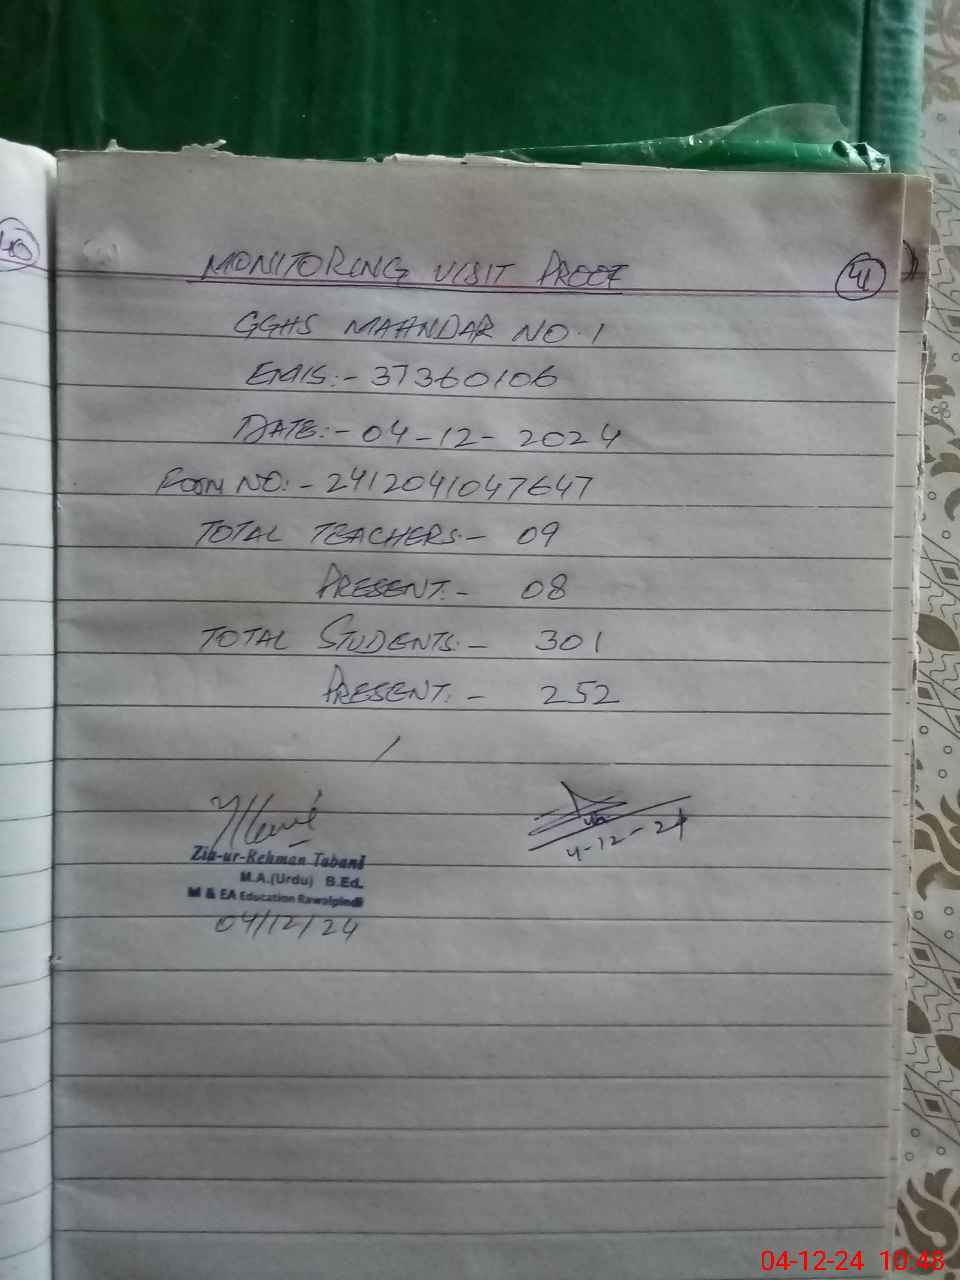 40
MONITORING VISIT PROOF
41
GGHS MAANDAR NO.1
EMIS:- 37360106
DATE:- 04-12-2024
FORM NO:- 2412041047647
TOTAL TEACHERS:- 09
PRESENT:- 08
TOTAL STUDENTS:- 301
PRESENT:- 252
Zia-ur-Rehman Tabani
M.A.(Urdu) B.Ed.
M & EA Education Rawalpindi
04/12/24
4-12-24
04-12-24 10:48